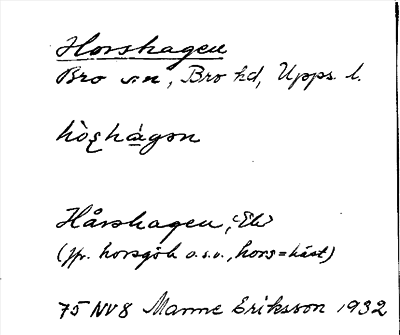 Horshagen
Bro sn, Bro hd, Upps. l.
hòʂhàgən
Hårshagen, Ek
(jfr. horsgök o.s.v., hors=häst)
75 NV8 Manne Eriksson 1932